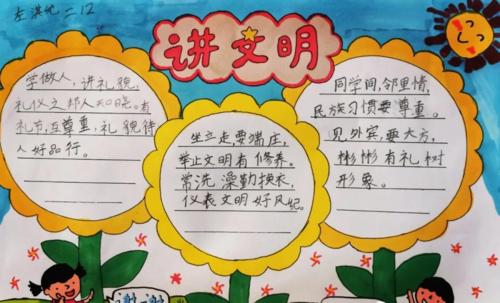 左淇允 二.12
讲文明
学做人，讲礼貌，
礼仪之邦人知晓。有
礼节，互尊重，礼貌待
人好品行。
坐立走，要端庄，
举止文明有修养。
常洗澡勤换衣，
仪表文明好风纪。
同学间，邻里情，
民族习惯要尊重。
见外宾，要大方，
彬彬有礼树
形象。
谢谢